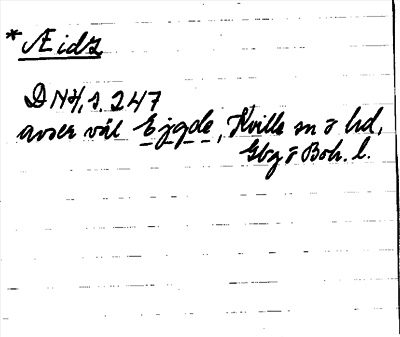 * Æidz
DN 4, s. 247
avser väl Ejgde, Kville sn o hd,
Gbg o Boh. l.